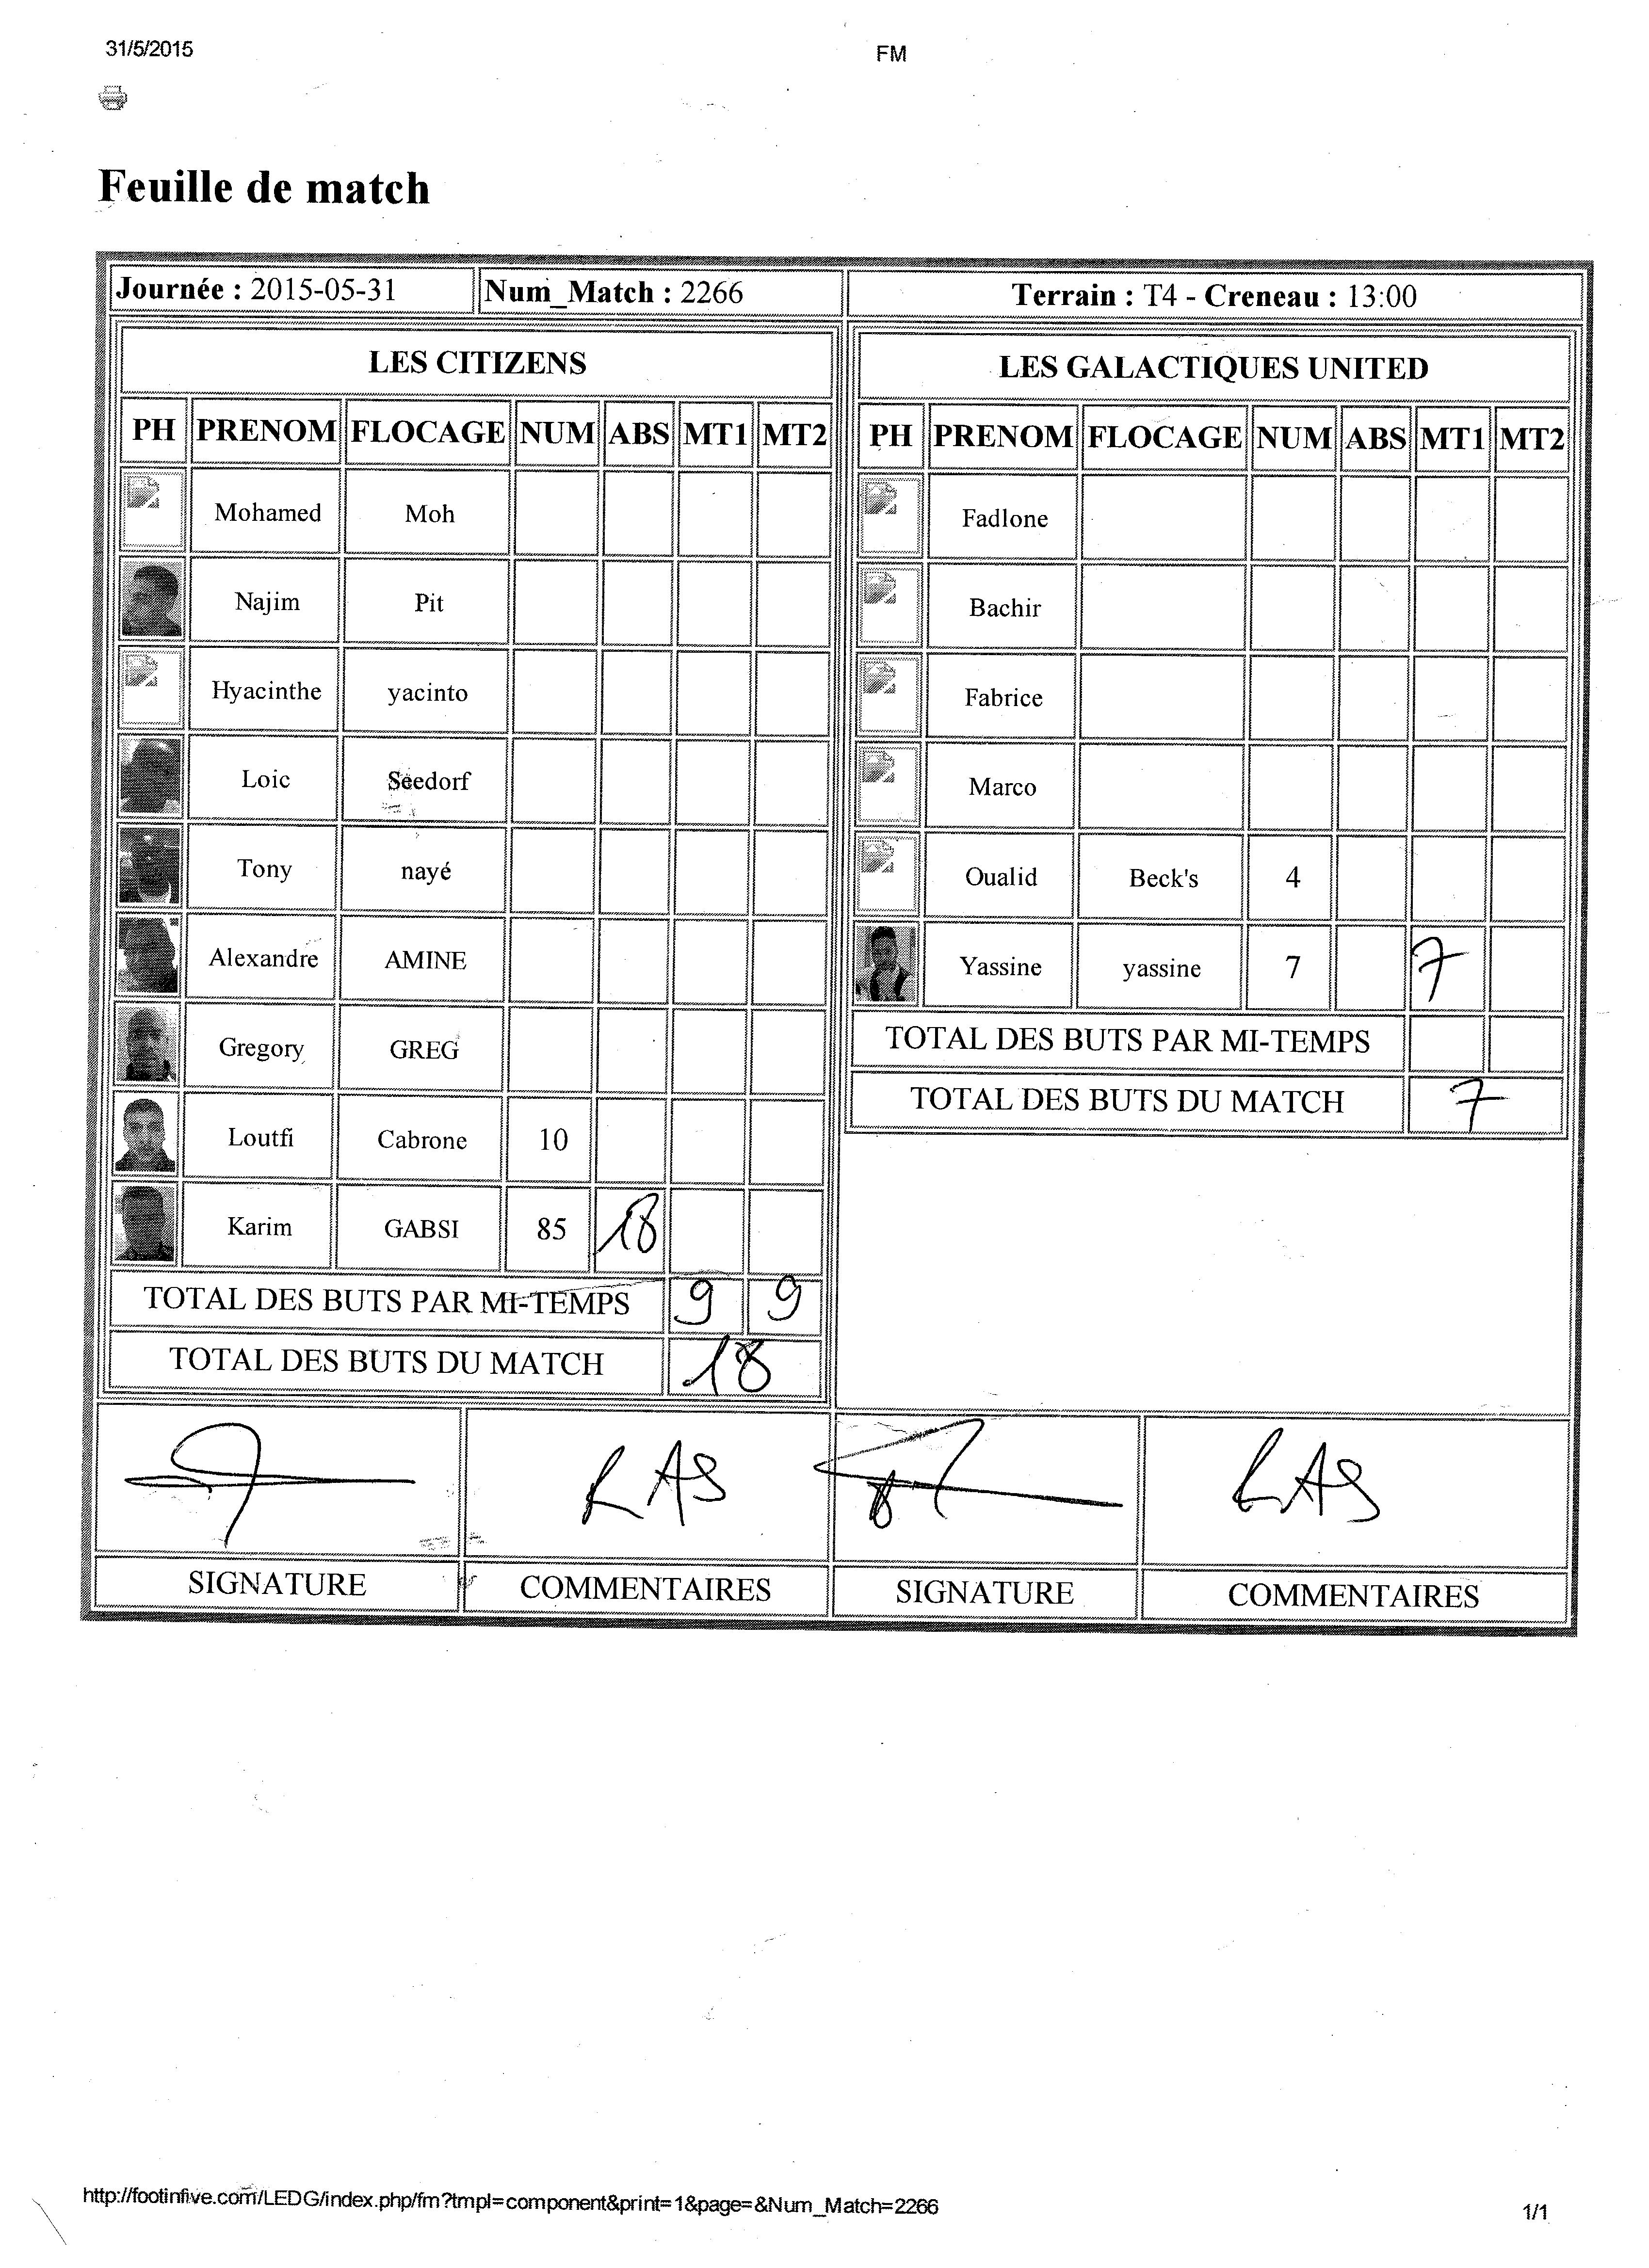 31/5/2015
FM
Feuille de match
Journée : 2015-05-31
Num_Match : 2266
Terrain : T4 - Creneau : 13:00
LES CITIZENS
PH PRENOM FLOCAGE NUM ABS MT1 MT2
Mohamed Moh
Najim Pit
Hyacinthe yacinto
Loic Seedorf
Tony nayé
Alexandre AMINE
Gregory GREG
Loutfi Cabrone 10
Karim GABSI 85 18
TOTAL DES BUTS PAR MI-TEMPS 9 9
TOTAL DES BUTS DU MATCH 18
LES GALACTIQUES UNITED
PH PRENOM FLOCAGE NUM ABS MT1 MT2
Fadlone
Bachir
Fabrice
Marco
Oualid Beck's 4
Yassine yassine 7 7
TOTAL DES BUTS PAR MI-TEMPS
TOTAL DES BUTS DU MATCH 7
RAS
RAS
SIGNATURE COMMENTAIRES SIGNATURE COMMENTAIRES
http://footinfive.com/LEDG/index.php/fm?tmpl=component&print=1&page=&Num_Match=2266
1/1